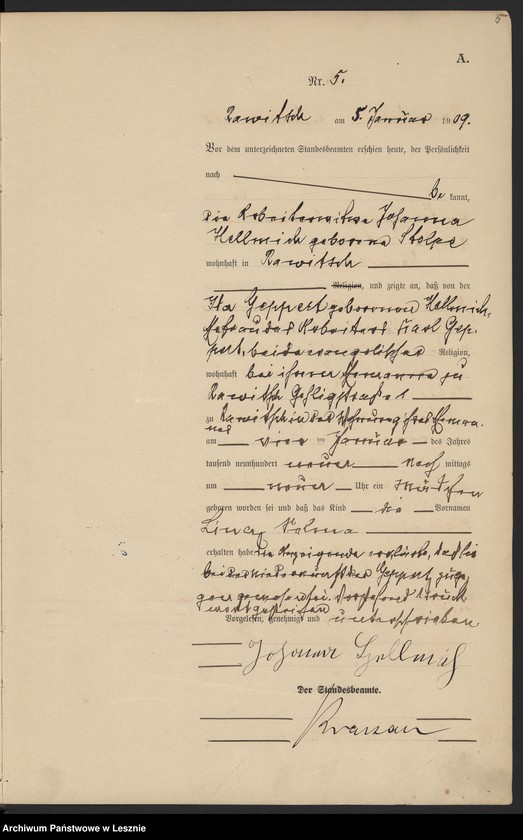 5
A.
Nr. 5.
Rawitsch am 5. Januar 1909.
Vor dem unterzeichneten Standesbeamten erschien heute, der Persönlichkeit
nach
be kannt,
die Arbeiterwitwe Johanna
Hellmich geborene Stolpe
wohnhaft in Rawitsch
Religion, und zeigte an, daß von der
Ida Geppert geborenen Hellmich,
Ehefrau des Arbeiters Karl Gep-
pert, beide evangelischer Religion,
wohnhaft bei ihrem Ehemanne zu
Rawitsch
zu Rawitsch in der Wohnung ihres Ehema-
nnes
am vier ten Januar des Jahres
tausend neunhundert neun nach mittags
um neun Uhr ein Mädchen
geboren worden sei und daß das Kind die Vornamen
Selma
erhalten habe. Die Anzeigende erklärte, daß sie
bei der Niederkunft der Geppert zuge-
gen gewesen sei. Vorstehend 1 Druck-
wort gestrichen
Vorgelesen, genehmigt und unterschrieben
Johanna Hellmich
Der Standesbeamte.
Archiwum Państwowe w Lesznie